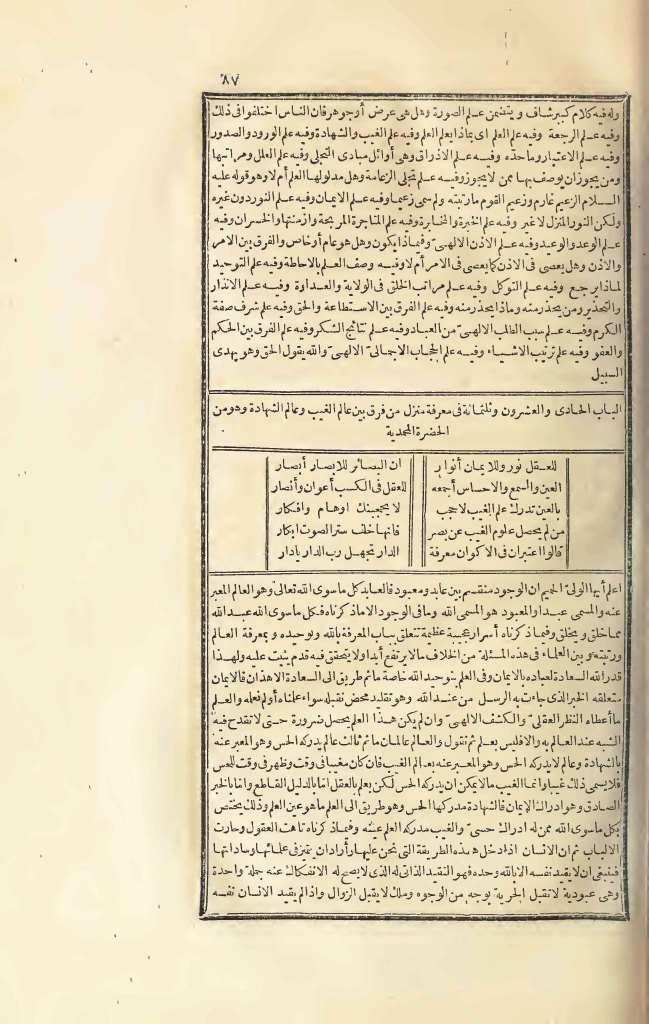 ٨٧
وله فيه كلام كبير شاف ويتضمن علم الصورة وهل هي عرض أو جوهر فان الناس اختلفوا في ذلك
وفيه علم الرجعة وفيه علم العلم اى بماذا يعلم العلم وفيه علم الغيب والشهادة وفيه علم الورود والصدور
وفيه علم الاعتبار وما حده وفيه علم الاذواق وهى أوائل مبادى التجلى وفيه علم العلل ومراتبها
ومن يجوز ان يوصف بها ممن لا يجوز وفيه علم تجلى الزعامة وهل مدلولها العلم أم لا وهو قوله عليه
السلام الزعيم غارم وزعيم القوم ما رتبته ولم سمى زعيما وفيه علم الايمان وفيه علم النور دون غيره
ولكن النور المنزل لا غير وفيه علم الخبرة والمخابرة وفيه علم المتاجرة المربحة وازمنتها والخسران وفيه
علم الوعد والوعيد وفيه علم الاذن الالهى وفيماذا يكون وهل هو عام أو خاص والفرق بين الامر
والاذن وهل يعصى فى الاذن كما يعصى فى الامر أم لا وفيه وصف العلم بالاحاطة وفيه علم التوحيد
لماذا يرجع وفيه علم التوكل وفيه علم مراتب الخلق فى الولاية والعداوة وفيه علم الانذار
والتحذير ومن يحذر منه وماذا يحذر منه وفيه علم الفرق بين الاستطاعة والحق وفيه علم شرف صفة
الكرم وفيه علم سبب الطلب الالهى من العباد وفيه علم نتائج الشكر وفيه علم الفرق بين الحكم
والعفو وفيه علم ترتيب الاشياء وفيه علم الحجاب الاجمالى الالهى والله يقول الحق وهو يهدى
السبيل
الباب الحادى والعشرون وثلثمائة فى معرفة منزل من فرق بين عالم الغيب وعالم الشهادة وهو من
الحضرة المحمدية
للعقل نور وللايمان أنوار ان البصائر للابصار أبصار
العين والسمع والاحساس أجمعه للعقل فى الكسب أعوان وأنصار
بالعين تدرك علم الغيب لا حجب لا يحجبنك اوهام وافكار
من لم يحصل علوم الغيب عن بصر فانها خلف ستر الصوت ابكار
قالوا اعتبران فى الاكوان معرفة الدار تجهل رب الدار يا دار
اعلم أيها الولىّ الحميم ان الوجود منقسم بين عابد ومعبود فالعابد كل ما سوى الله تعالى وهو العالم المعبر
عنه والمسمى عبدا والمعبود هو المسمى الله وما فى الوجود الا ما ذكرناه فكل ما سوى الله عبد الله
مما خلق ويخلق وفيما ذكرناه أسرار عجيبة عظيمة تتعلق بباب المعرفة بالله وتوحيده وبمعرفة العالم
ورتبته وبين العلماء فى هذه المسئلة من الخلاف ما لا يرتفع أبدا ولا يتحقق فيه قدم يثبت عليه ولهذا
قدر الله السعادة لعباده بالايمان وفى العلم بتوحيد الله خاصة ما ثم طريق الى السعادة الا هذان فالايمان
متعلقه الخبر الذى جاءت به الرسل من عند الله وهو تقليد محض نقبله سواء علمناه أو لم نعلمه والعلم
ما أعطاه النظر العقلى والكشف الالهى وان لم يكن هذا العلم يحصل ضرورة حتى لا تقدح فيه
الشبه عند العالم به والا فليس بعلم ثم نقول والعالم عالمان ما ثم ثالث عالم يدركه الحس وهو المعبر عنه
بالشهادة وعالم لا يدركه الحس وهو المعبر عنه بعالم الغيب فان كان مغيبا فى وقت وظهر فى وقت للحس
فلا يسمى ذلك غيبا وانما الغيب ما لا يمكن ان يدركه الحس لكن يعلم بالعقل اما بالدليل القاطع واما بالخبر
الصادق وهو ادراك الايمان فالشهادة مدركها الحس وهو طريق الى العلم ما هو عين العلم وذلك يختص
بكل ما سوى الله ممن له ادراك حسى والغيب مدركه العلم عينه وفيما ذكرناه تاهت العقول وحارت
الالباب ثم ان الانسان اذا دخل هذه الطريقة التى نحن عليها وأراد ان يتميز فى علمائها وساداتها
فينبغى ان لا يقيد نفسه الا بالله وحده فهو التقييد الذاتى له الذى لا يصح له الانفكاك عنه جملة واحدة
وهى عبودية لا تقبل الحرية بوجه من الوجوه وملك لا يقبل الزوال واذا لم يقيد الانسان نفسه